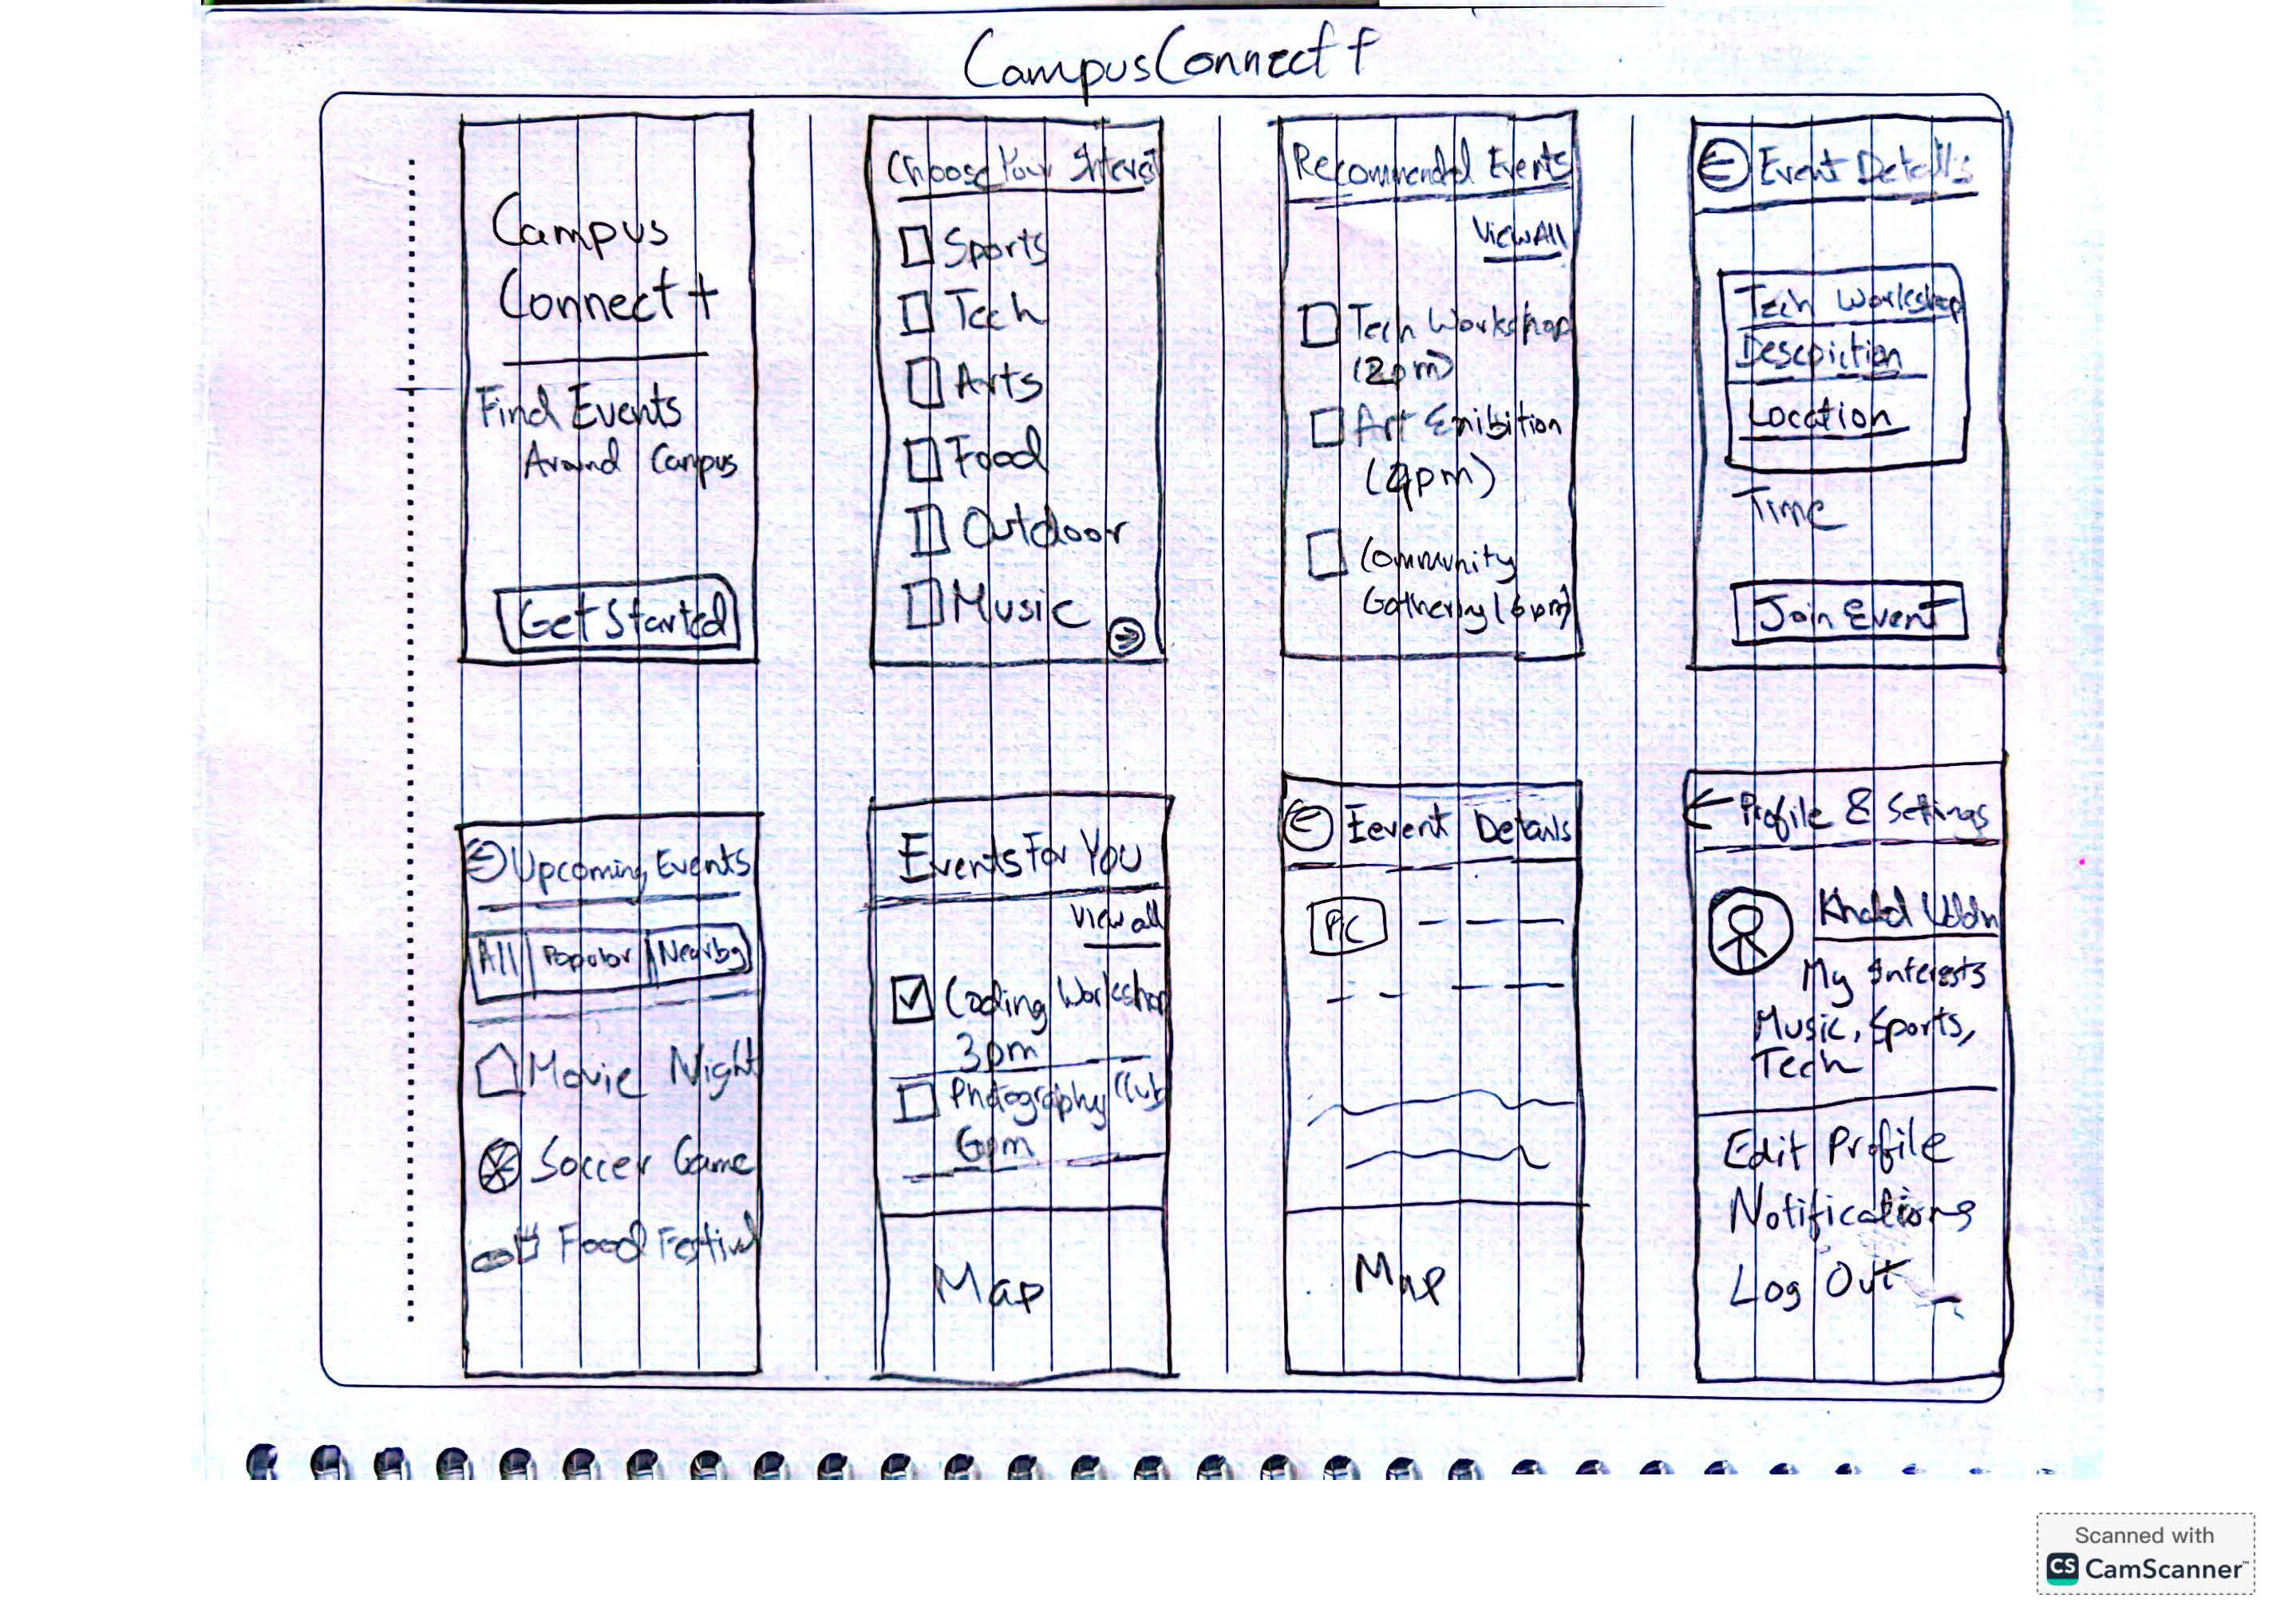 CampusConnect+
Campus
Connect+
Find Events
Around Campus
Get Started
Choose Your Interest
Sports
Tech
Arts
Food
Outdoor
Music
Recommended Events
View All
Tech Workshop
(2pm)
Art Exnibition
(4pm)
Community
Gathering (6pm)
Event Details
Tech Workshop
Location
Time
Join Event
Upcoming Events
All Popular Nearby
Movie Night
Soccer Game
Food Festival
Events For You
View all
Coding Workshop
3pm
Photography Club
6pm
Map
Eevent Details
PIC
Map
Profile & Settings
My Interests
Music, Sports,
Tech
Edit Profile
Notifications
Log Out
Scanned with
CS CamScanner™